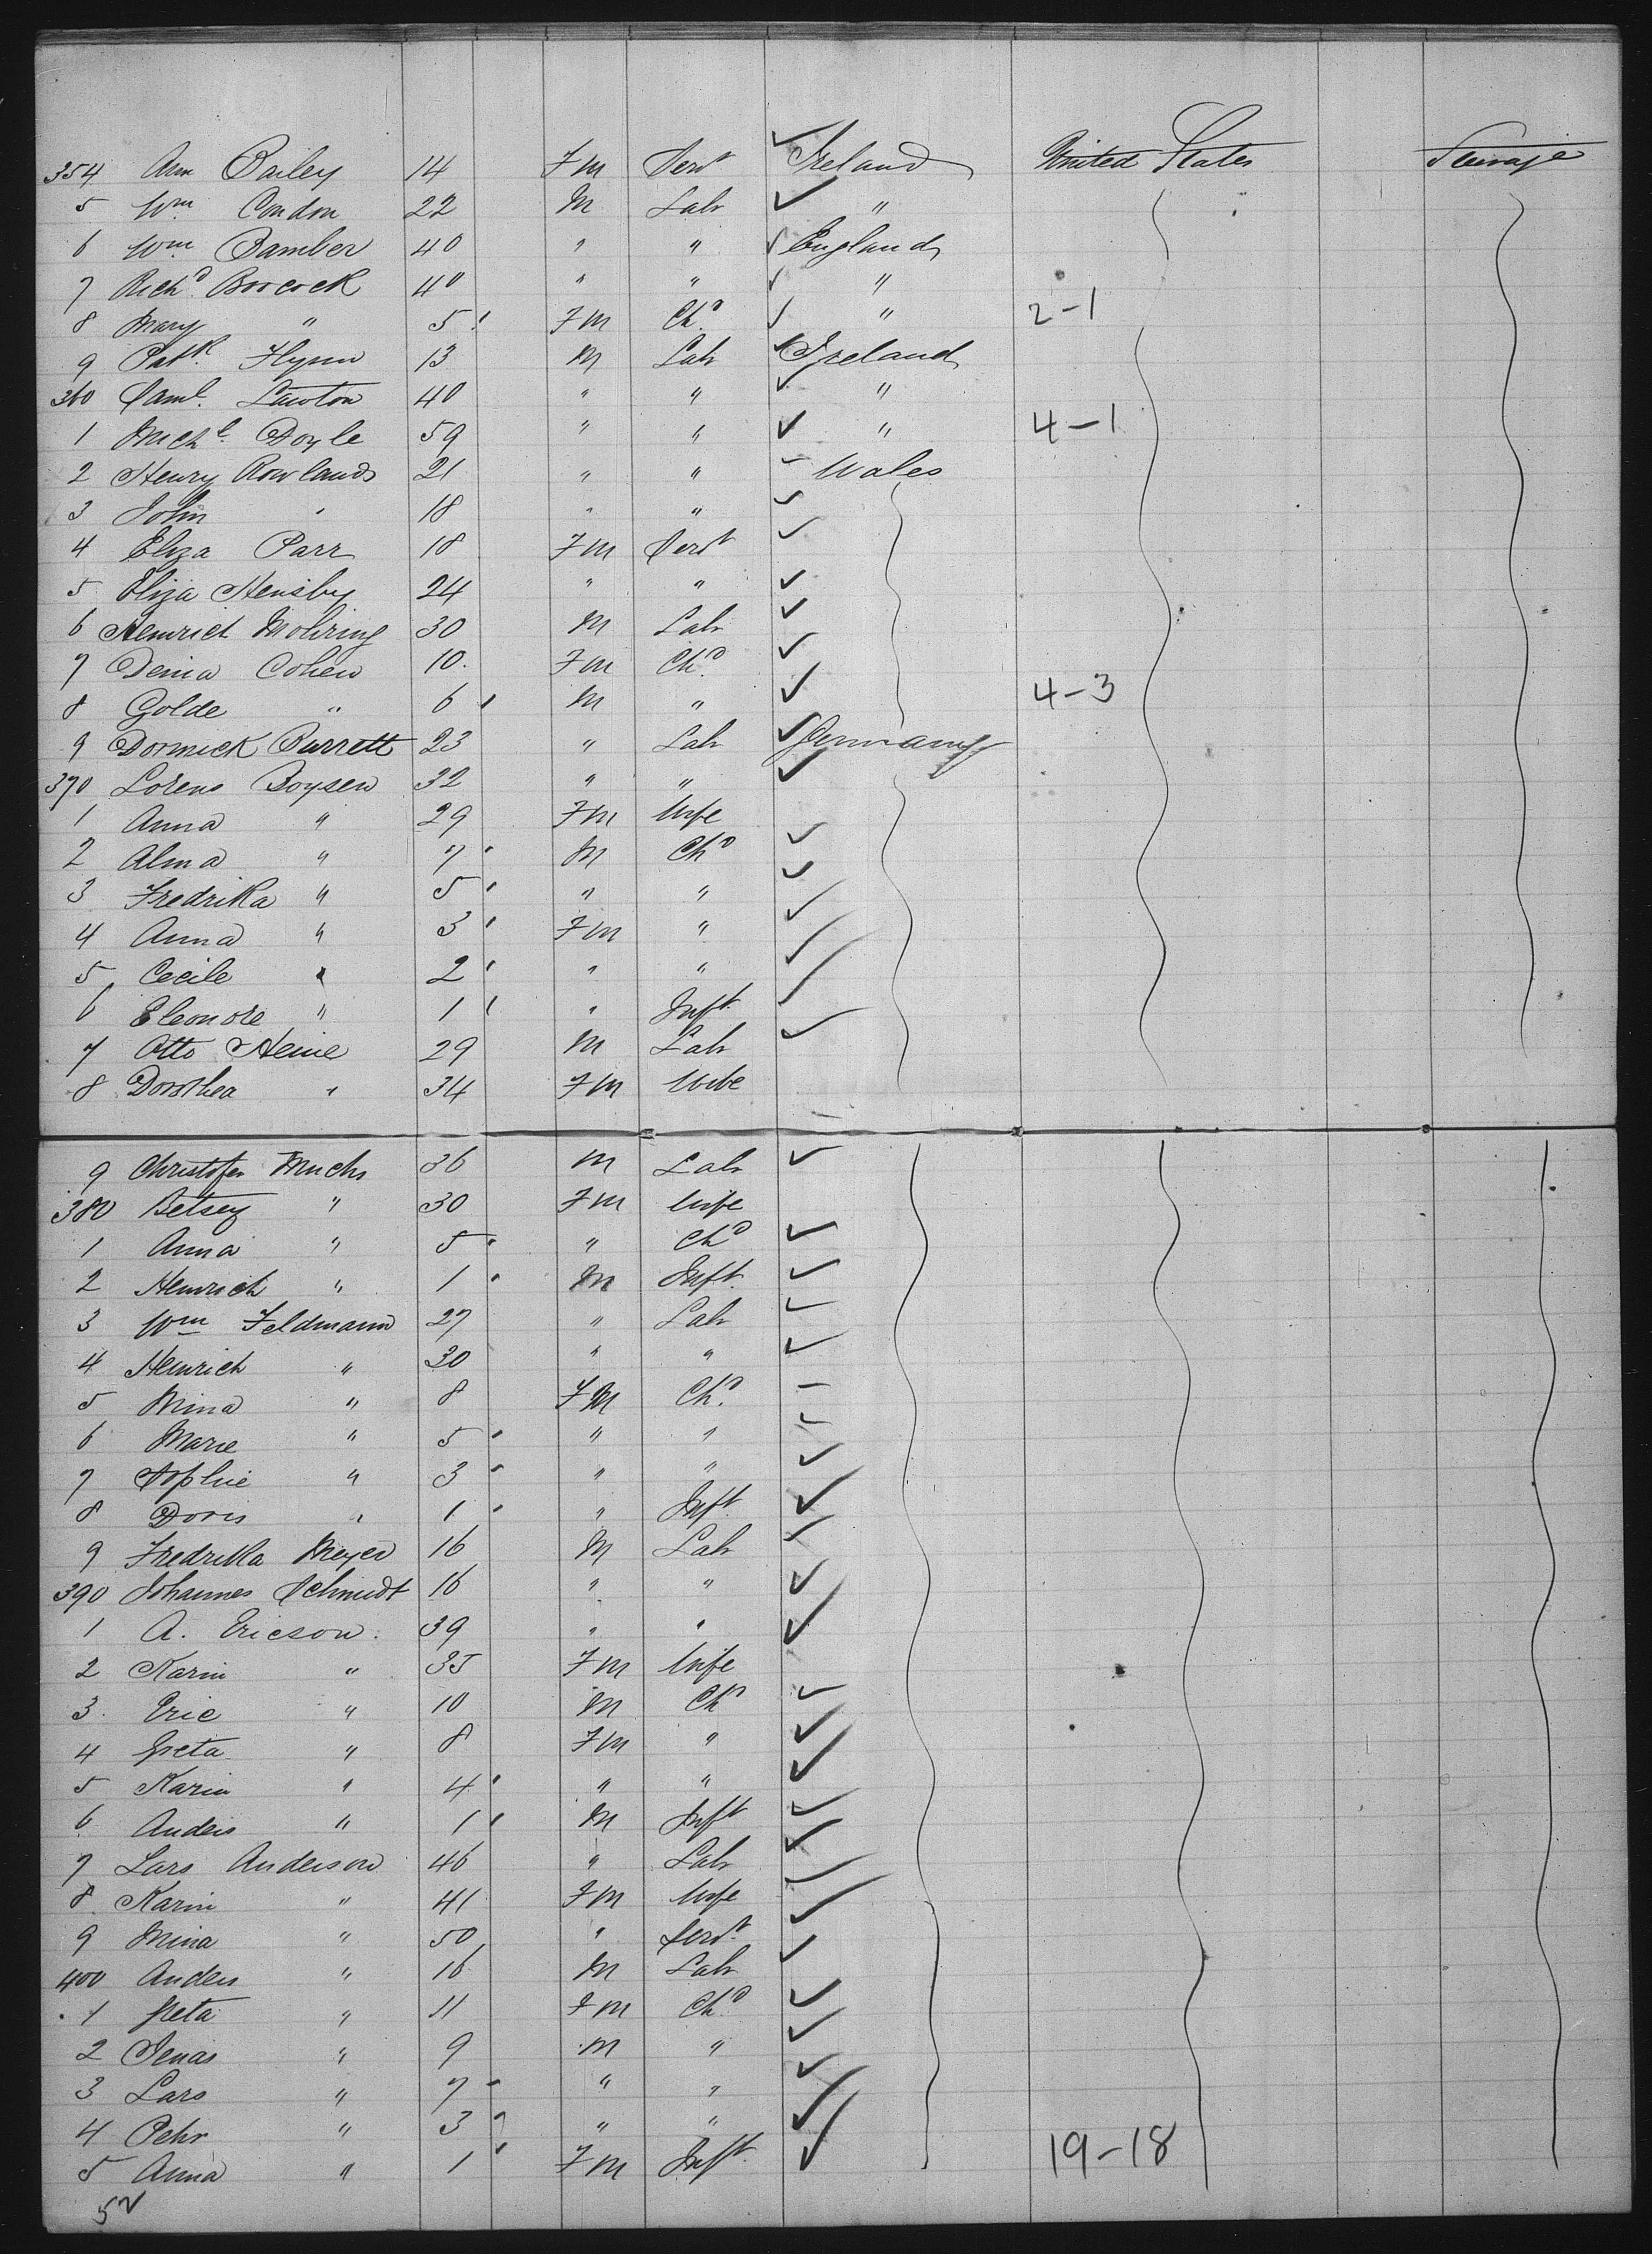 354 Ann Bailey 14 Fm Servt Ireland United States Steerage
5 Wm Condon 22 M Labr "
6 Wm Bamber 40 " " England
7 Richd Boocock 40 " " "
8 Mary " 5 Fm Chd " 2-1
9 Patk Flynn 13 M Labr Ireland
360 Saml. Lawton 40 " " "
1 Michl Doyle 59 " " " 4-1
2 Henry Rowlands 21 " " Wales
3 John " 18 " "
4 Eliza Parr 18 Fm Servt
5 Eliza Hensby 24 " "
6 Heinrich Mohring 30 M Labr
7 Denia Cohen 10. Fm Chd
8 Golde " 6 M " 4-3
9 Dormick Purrett 23 " Labr Germany
370 Lorens Boysen 32 " "
1 Anna " 29 Fm Wife
2 Alma " 7 M Chd
3 Fredrika " 5 " "
4 Anna " 3 Fm "
5 Cecile " 2 " "
6 Eleonore " 1 " Inft
7 Otto Heine 29 M Labr
8 Dorothea " 34 Fm Wife
9 Christofer Muchs 36 M Labr
380 Betsey " 30 Fm Wife
1 Anna " 5 " Chd
2 Heinrich " 1 M Inft
3 Wm Feldmann 27 " Labr
4 Heinrich " 30 " "
5 Mina " 8 Fm Chd
6 Marie " 5 " "
7 Sophie " 3 " "
8 Doris " 1 " Inft
9 Fredrika Meyer 16 M Labr
390 Johannes Schmidt 16 " "
1 A. Ericson 39 " "
2 Karin " 35 Fm Wife
3 Eric " 10 M Chd
4 Greta " 8 Fm "
5 Karin " 4 " "
6 Anders " 1 M Inft
7 Lars Anderson 46 " Labr
8 Karin " 41 Fm Wife
9 Mina " 50 " Servt
400 Anders " 16 M Labr
1 Greta " 11 Fm Chd
2 Jenas " 9 M "
3 Lars " 7 " "
4 Pehr " 3 " "
5 Anna " 1 Fm Inft 19-18
52